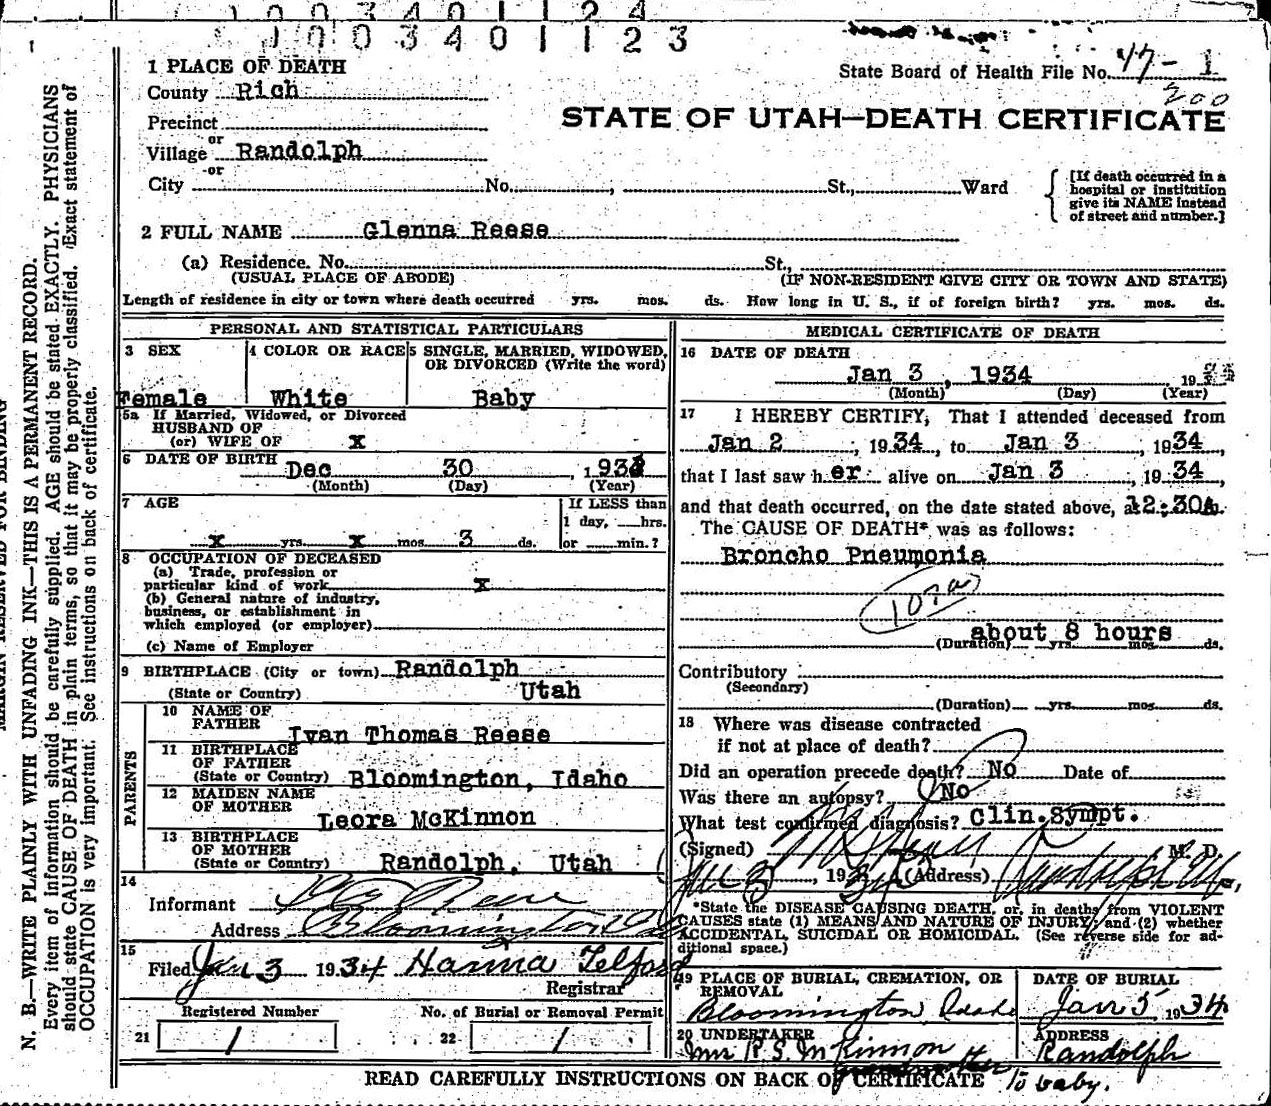 1 0 0 3 4 0 1 1 2 4
1 0 0 3 4 0 1 1 2 3
1 PLACE OF DEATH
State Board of Health File No. 47- 1
County Rich
200
STATE OF UTAH—DEATH CERTIFICATE
Precinct
or
Village Randolph
or
City No. , St., Ward
[If death occurred in a
hospital or institution
give its NAME instead
of street and number.]
2 FULL NAME Glenna Reese
(a) Residence. No. St.,
(USUAL PLACE OF ABODE) (IF NON-RESIDENT GIVE CITY OR TOWN AND STATE)
Length of residence in city or town where death occurred yrs. mos. ds. How long in U. S., if of foreign birth? yrs. mos. ds.
PERSONAL AND STATISTICAL PARTICULARS
3 SEX 4 COLOR OR RACE 5 SINGLE, MARRIED, WIDOWED,
OR DIVORCED (Write the word)
Female White Baby
5a If Married, Widowed, or Divorced
HUSBAND OF
(or) WIFE OF x
6 DATE OF BIRTH Dec 30 , 1933
(Month) (Day) (Year)
7 AGE
If LESS than
1 day, hrs.
x yrs. x mos. 3 ds. or min.?
8 OCCUPATION OF DECEASED
(a) Trade, profession or
particular kind of work x
(b) General nature of industry,
business, or establishment in
which employed (or employer)
(c) Name of Employer
9 BIRTHPLACE (City or town) Randolph
(State or Country) Utah
PARENTS
10 NAME OF
FATHER Ivan Thomas Reese
11 BIRTHPLACE
OF FATHER
(State or Country) Bloomington, Idaho
12 MAIDEN NAME
OF MOTHER Leora McKinnon
13 BIRTHPLACE
OF MOTHER
(State or Country) Randolph, Utah
14
Informant Reese
Address Bloomington Ida
15
Filed Jan 3 1934 Hanna Telford
Registrar
Registered Number No. of Burial or Removal Permit
21 1 22 1
MEDICAL CERTIFICATE OF DEATH
16 DATE OF DEATH
Jan 3 , 1934 19 34
(Month) (Day) (Year)
17 I HEREBY CERTIFY, That I attended deceased from
Jan 2 , 1934 , to Jan 3 , 1934
that I last saw h er alive on Jan 3 , 19 34,
and that death occurred, on the date stated above, at 12:30A m.
The CAUSE OF DEATH* was as follows:
Broncho Pneumonia
107a
about 8 hours
(Duration) yrs. mos. ds.
Contributory
(Secondary)
(Duration) yrs. mos. ds.
18 Where was disease contracted
if not at place of death?
Did an operation precede death? No Date of
Was there an autopsy? No
What test confirmed diagnosis? Clin.Sympt.
(Signed) M. D.
Jan 3 , 19 34 (Address) Randolph Ut,
*State the DISEASE CAUSING DEATH, or, in deaths from VIOLENT
CAUSES state (1) MEANS AND NATURE OF INJURY; and (2) whether
ACCIDENTAL, SUICIDAL OR HOMICIDAL. (See reverse side for ad-
ditional space.)
19 PLACE OF BURIAL, CREMATION, OR
REMOVAL
Bloomington Idaho
DATE OF BURIAL
Jan 5 1934
20 UNDERTAKER
Mrs R. S. McKinnon
ADDRESS
Randolph
to baby.
READ CAREFULLY INSTRUCTIONS ON BACK OF CERTIFICATE
MARGIN RESERVED FOR BINDING
N. B.—WRITE PLAINLY WITH UNFADING INK—THIS IS A PERMANENT RECORD.
Every item of information should be carefully supplied. AGE should be stated EXACTLY. PHYSICIANS
should state CAUSE OF DEATH in plain terms, so that it may be properly classified. Exact statement of
OCCUPATION is very important. See instructions on back of certificate.